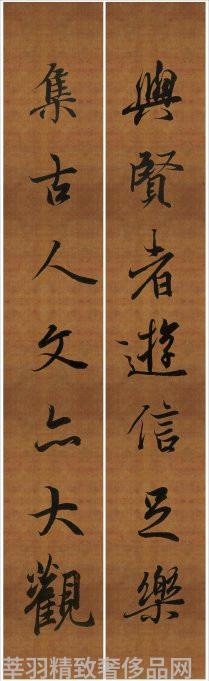 與賢者遊信足樂
集古人文亦大觀
莘羽精致奢侈品网